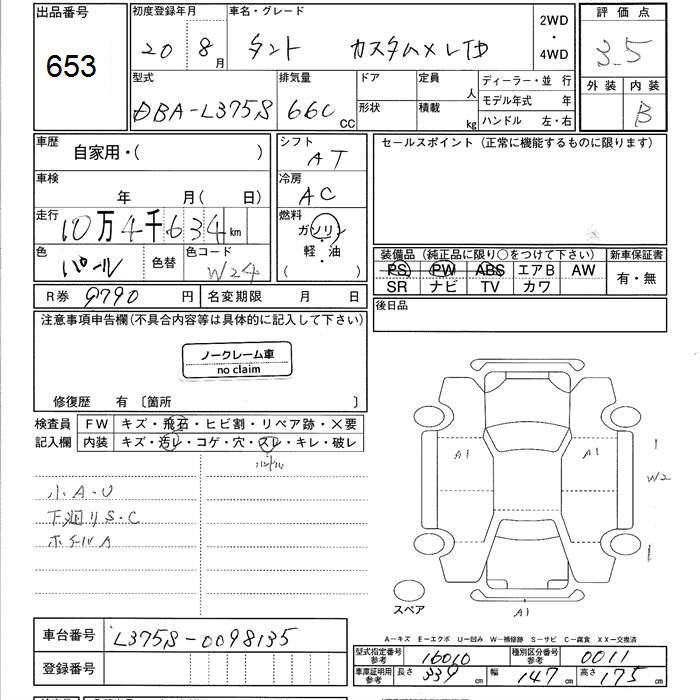 出品番号
653
初度登録年月
20 8月
車名・グレード
タント カスタムメレTD
2WD
・
4WD
評価点
3.5
外装 内装
B
型式
DBA-L375S
排気量
660 cc
ドア
形状
定員
人
積載
kg
ディーラー・並 行
モデル年式 年
ハンドル 左・右
車歴
自家用・( )
車検
年 月( 日)
走行
10万4千634km
色
パール
色替
色コード
W24
シフト
AT
冷房
AC
燃料
ガソリン
・
軽・油
( )
セールスポイント (正常に機能するものに限ります)
装備品 (純正品に限り○をつけて下さい)
PS PW ABS エアB AW
SR ナビ TV カワ
新車保証書
有・無
R券 9790 円
名変期限 月 日
後日品
注意事項申告欄(不具合内容等は具体的に記入して下さい)
ノークレーム車
no claim
修復歴 有 〔箇所 〕
検査員
記入欄
FW キズ・飛石・ヒビ割・リペア跡・×要
内装 キズ・汚レ・コゲ・穴・スレ・キレ・破レ
ハンドル
小A・U
下廻りS・C
ホイルA
A1
A1
1
W2
1
A1
スペア
A―キズ E―エクボ U―凹み W―補修跡 S―サビ C―腐食 XX―交換済
車台番号
L375S-0098135
登録番号
型式指定番号
参考
16010
種別区分番号
参考
0011
車庫証明用
参考
長さ 339 cm
幅 147 cm
高さ 175 cm